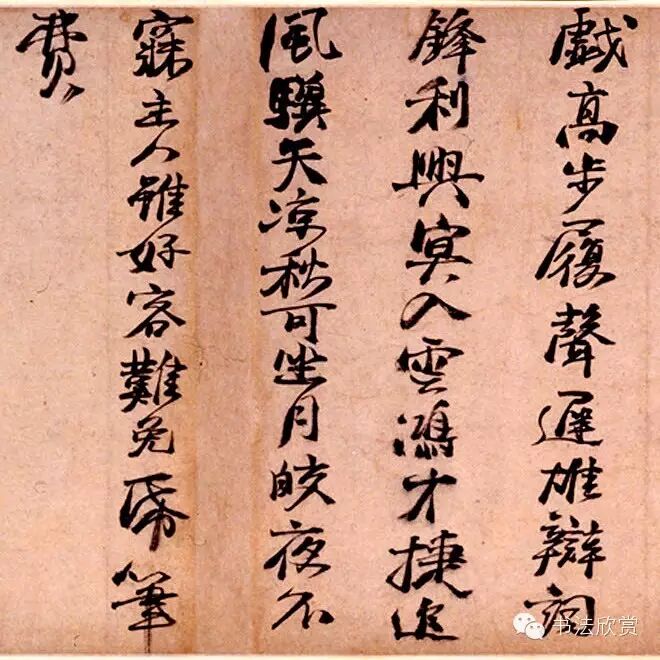 戲高步履聲遲雄辯詞
鋒利興冥入雲鴻才捷追
風驥天凉秋可坐月皎夜不
寐主人雖好客難免帋筆
費
书法欣赏